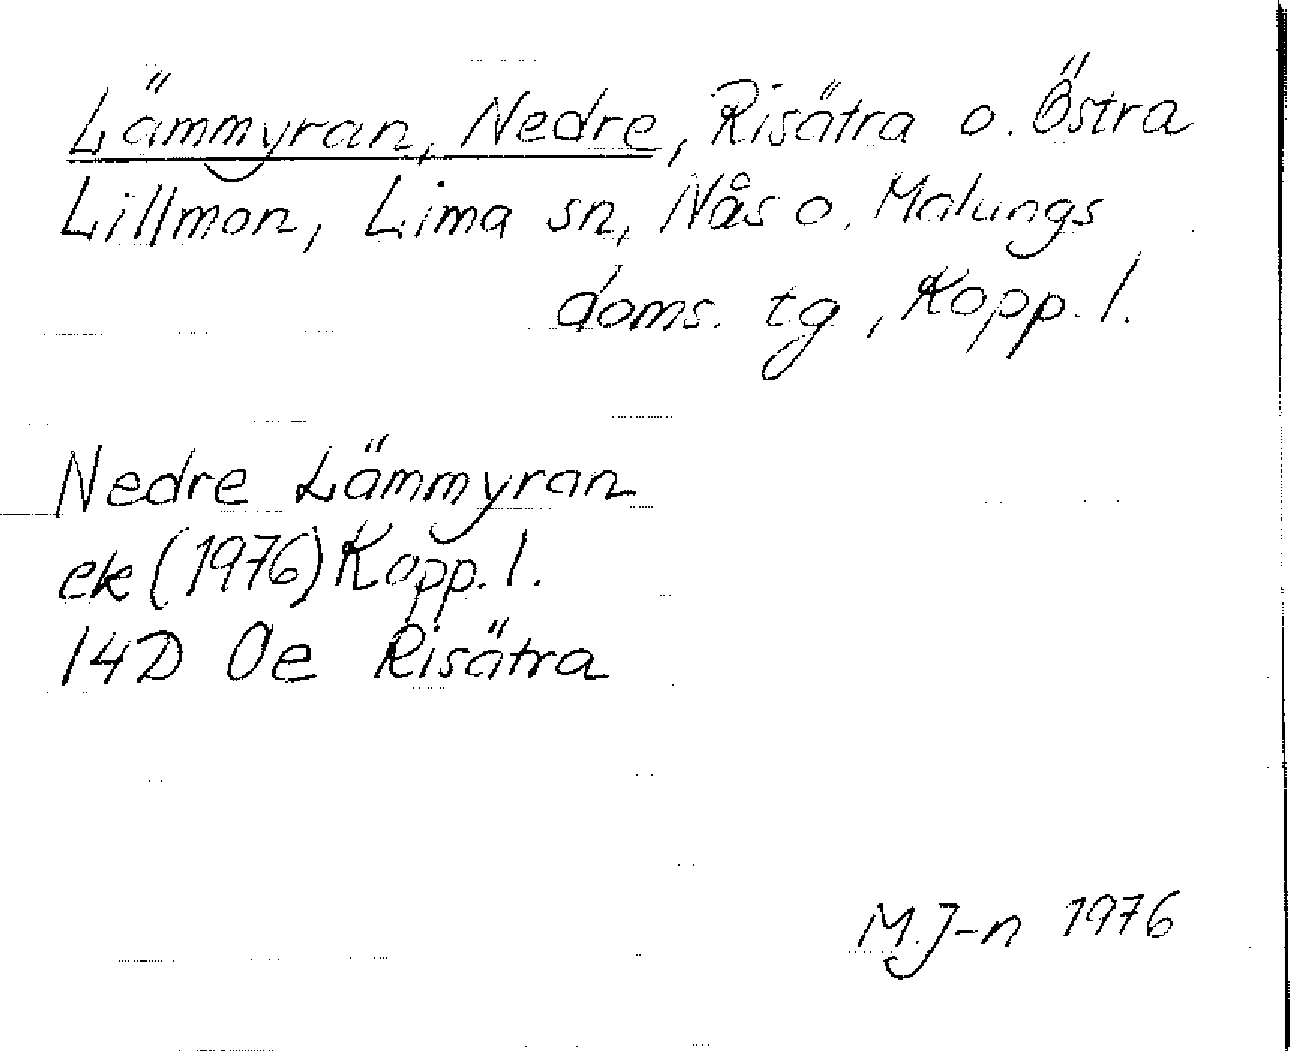 Lämmyran, Nedre, Risätra o. Östra
Lillmon, Lima sn, Nås o. Malungs
doms. tg, Kopp. l.
Nedre Lämmyran
ek (1976) Kopp. l.
14D 0e Risätra
M.J-n 1976